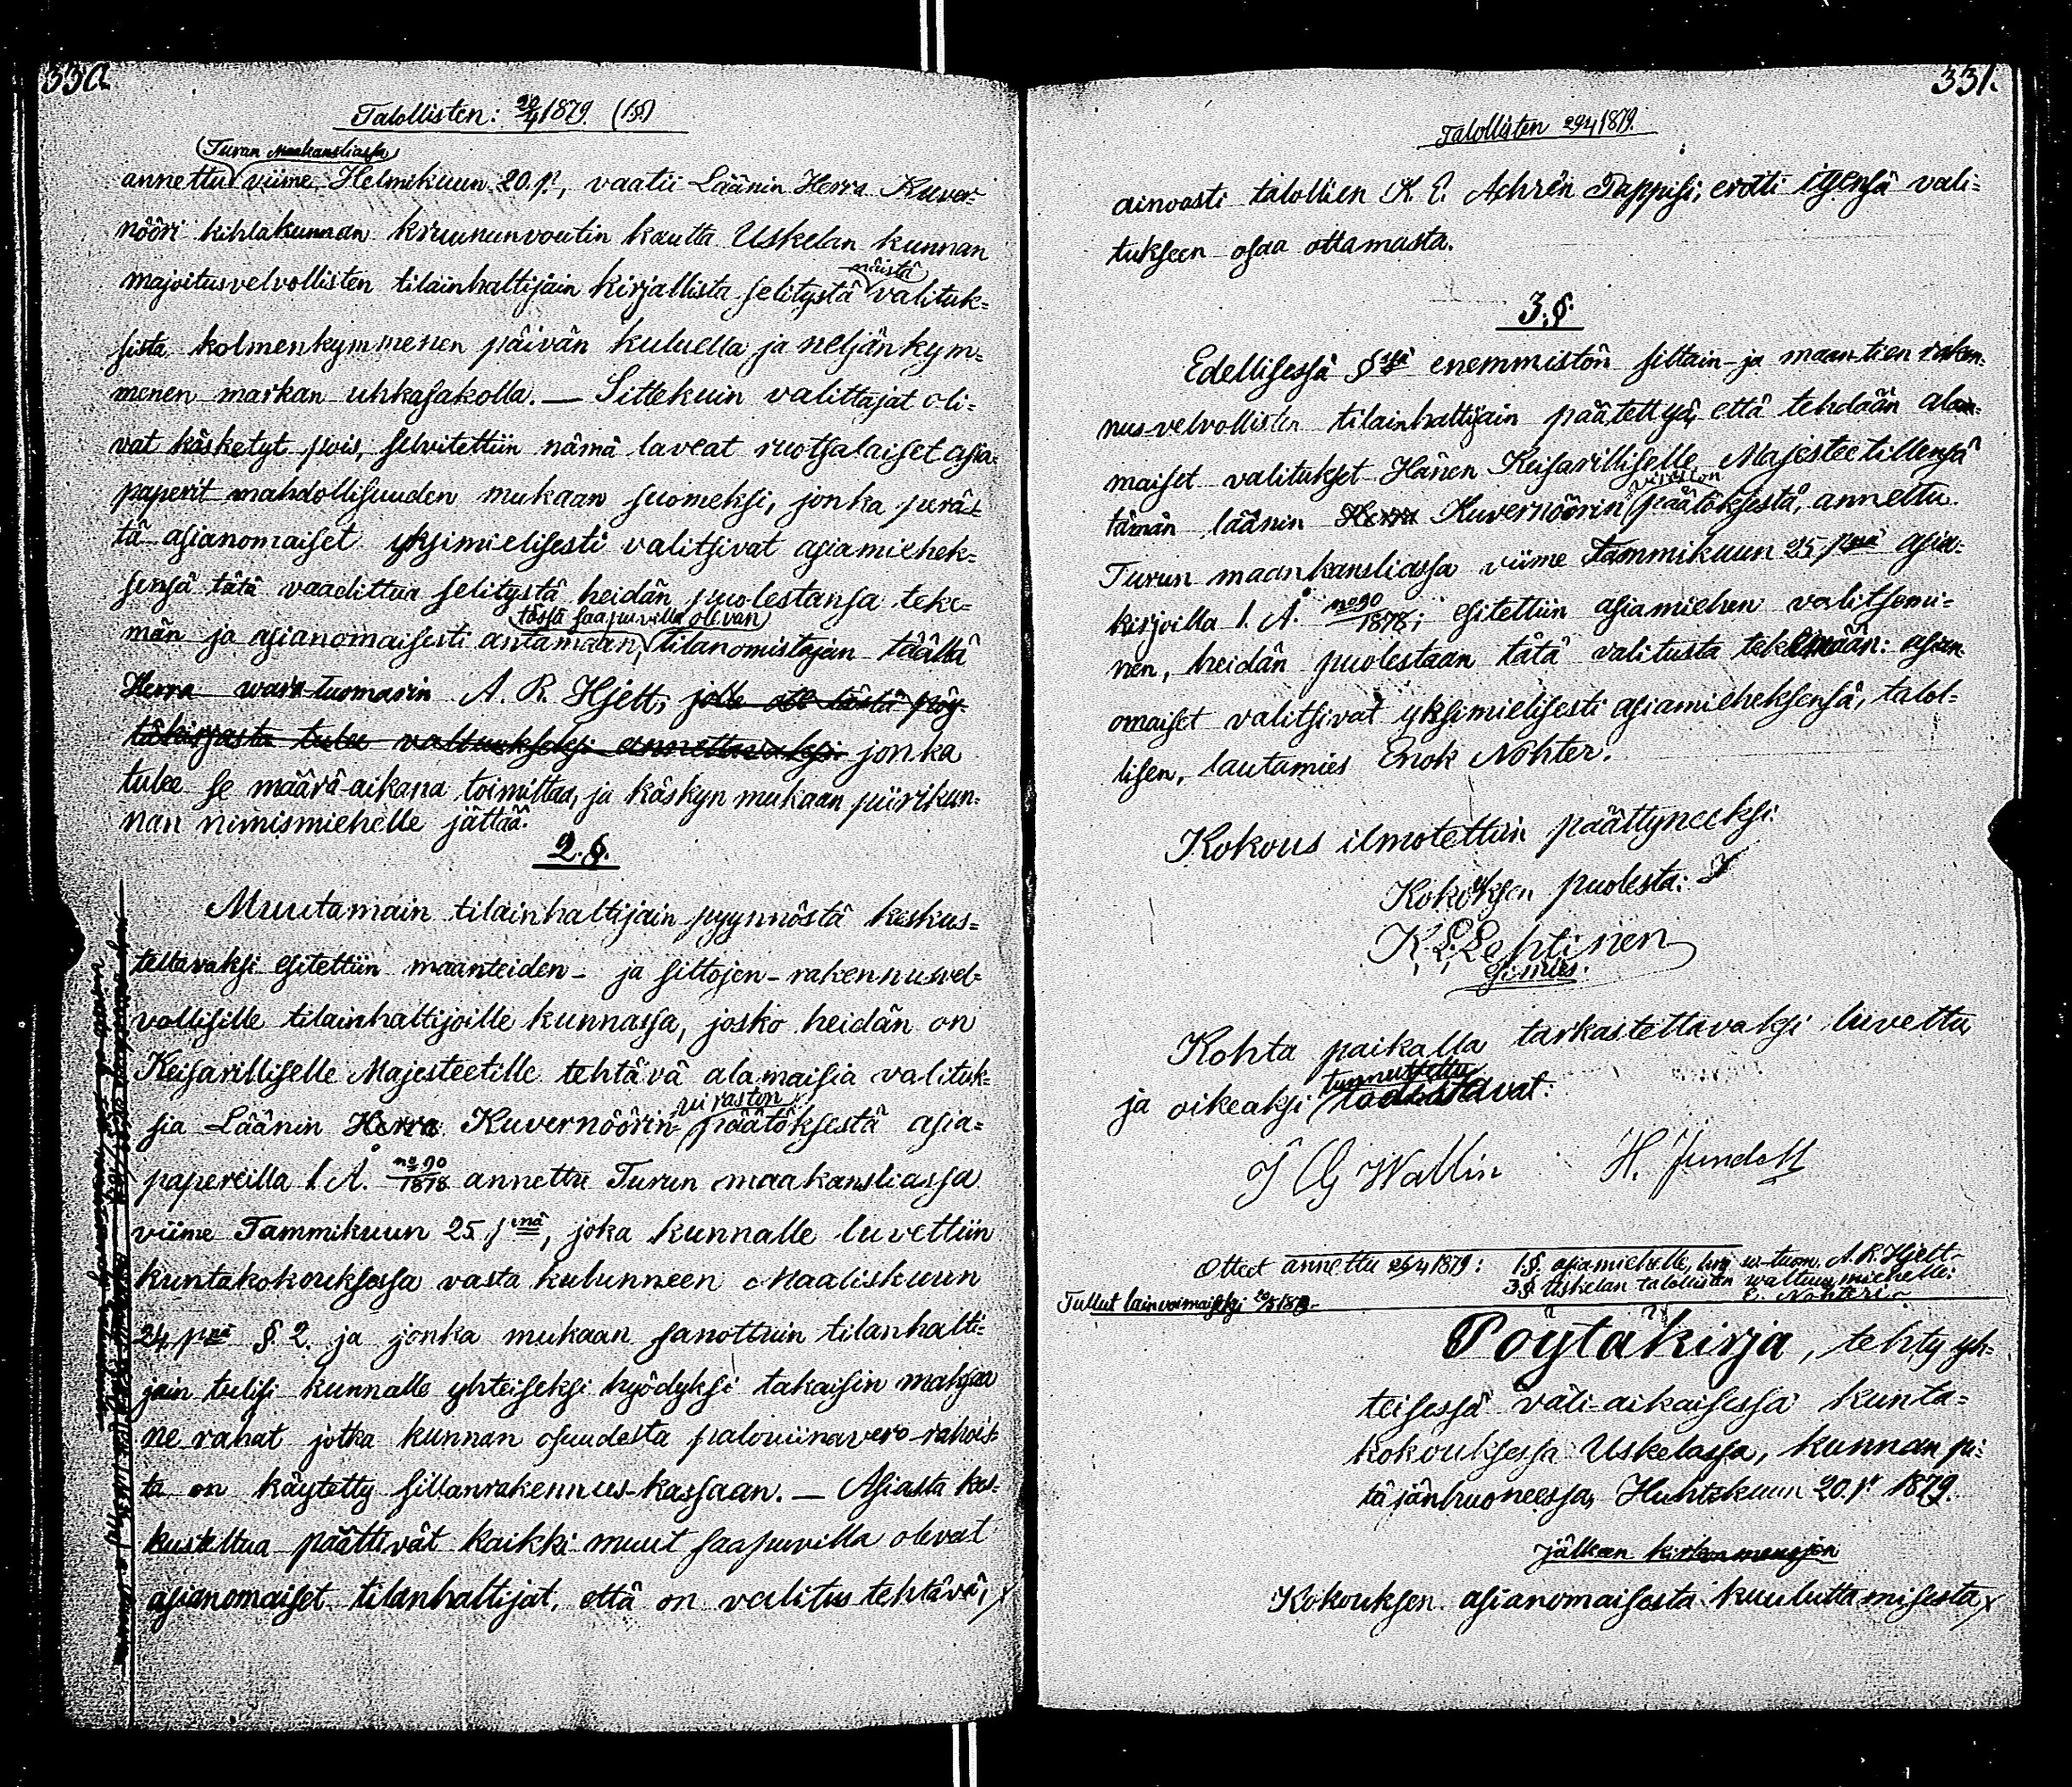 330.
Talollisten: 20/4 1879. (1§)
Turun Maakansliassa
annettu viime Helmikuun 20. p:, vaatii Läänin Herra Kuver-
nööri kihlakunnan kruununvoutin kautta Uskelan kunnan
näistä
majoitusvelvollisten tilainhaltijain kirjallista selitystä valituk-
sista kolmenkymmenen päivän kuluella ja neljänkym-
menen markan uhkasakolla. — Sittekuin valittajat oli-
vat käsketyt pois, selvitettiin nämä laveat ruotsalaiset asia-
paperit mahdollisuuden mukaan suomeksi, jonka peräs-
tä asianomaiset yksimielisesti valitsivat asiamiehek-
sensä tätä vaadittua selitystä heidän puolestansa teke-
tässä saapuvilla olevan
män ja asianomaisesti antamaan, tilanomistajan täältä
Herra vara-tuomarin A. R. Hjelt, jolle ote tästä pöy-
täkirjasta tulee valtuukseksi annettavaksi. jonka
tulee se määrä-aikana toimittaa, ja käskyn mukaan piirikun-
nan nimismiehelle jättää.
2.§.
Muutamain tilainhaltijain pyynnöstä keskus-
teltavaksi esitettiin maanteiden- ja siltojen-rakennusvel-
vollisille tilainhaltijoille kunnassa, josko heidän on
Keisarilliselle Majesteetille tehtävä alamaisia valituk-
viraston
sia Läänin Herra Kuvernöörin päätöksestä asia-
papereilla l. Å. no 90/1878 annettu Turun maakansliassa
viime Tammikuun 25 p:nä, joka kunnalle luvettiin
kuntakokouksessa vasta kulunneen Maaliskuun
24 p:nä §. 2. ja jonka mukaan sanottuin tilanhalti-
jain tulisi kunnalle yhteiseksi hyödyksi takaisin maksaa
ne rahat jotka kunnan osuudesta paloviinavero-rahois-
ta on käytetty sillanrakennus-kassaan. — Asiasta kes-
kusteltua päättivät kaikki muut saapuvilla olevat
asianomaiset tilanhaltijat, että on valitus tehtävä,
331.
Talollisten 20/4 1879.
ainoasti talollien K. E. Achrén Pappisi, erotti itsensä vali-
tukseen osaa ottamasta.
3.§.
Edellisessä §:ssä enemmistön siltain- ja maan-tien raken-
nus-velvollisten tilainhaltijain päätettyä, että tehdään alam-
maiset valitukset Hänen Keisarilliselle Majesteetillensä
viraston
tämän läänin Herra Kuvernöörin päätöksestä, annettu
Turun maankansliassa viime Tammikuun 25 p:nä asia-
kirjoilla l. Å. no 90/1878; esitettiin asiamiehen valitsemi-
nen, heidän puolestaan tätä valitusta tekemään: asian-
omaiset valitsivat yksimielisesti asiamieheksensä, talol-
lisen, lautamies Enok Nohter.
Kokous ilmotettiin päättyneeksi.
Kokouksen puolesta:
K. L. Lehtinen
esimies.
Kohta paikalla tarkastettavaksi luvettu
tunnustettu
ja oikeaksi todistavat.
J G Wallin H. Jundell
Otteet annettu 25/4 1879: 1.§. asiamiehelle, herra v.-tuom. A. R. Hjelt-
3.§. Uskelan talollisten waltuusmiehelle:
E. Nohteri.
Tullut lainvoimaiseksi 20/5 1879.
Pöytäkirja, tehty yh-
teisessä väli-aikaisessa kunta-
kokouksessa Uskelassa, kunnan pi-
täjänhuoneessa, Huhtikuun 20. p: 1879.
jälkeen kirkonmenojen
Kokouksen asianomaisesta kuuluttamisesta